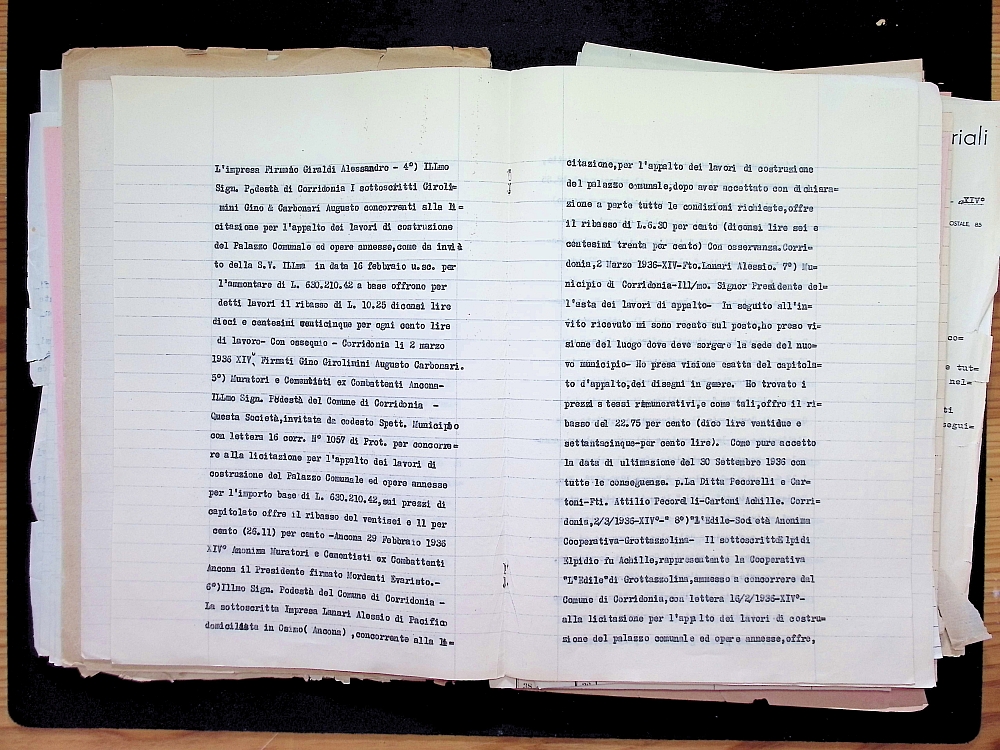 L'impresa Firmato Giraldi Alessandro - 4º) ILLmo
Sign. Podestà di Corridonia I sottoscritti Giroli=
mini Gino & Carbonari Augusto concorrenti alla li=
citazione per l'appalto dei lavori di costruzione
del Palazzo Comunale ed opere annesse,come da invià
to della S.V. ILLma in data 16 febbraio u.sc. per
l'ammontare di L. 630.210.42 a base offrono per
detti lavori il ribasso di L. 10.25 diconsi lire
dieci e centesimi venticinque per ogni cento lire
di lavoro- Con ossequio - Corridonia li 2 marzo
1936 XIVº Firmati Gino Girolimini Augusto Carbonari.
5º) Muratori e Cementisti ex Combattenti Ancona-
ILLmo Sign. Podestà del Comune di Corridonia -
Questa Società,invitata da codesto Spett. Municipio
con lettera 16 corr. Nº 1057 di Prot. per concorre=
re alla licitazione per l'appalto dei lavori di
costruzione del Palazzo Comunale ed opere annesse
per l'importo base di L. 630.210.42,sui prezzi di
capitolato offre il ribasso del ventisei e 11 per
cento (26.11) per cento -Ancona 29 Febbraio 1936
XIVº Anonima Muratori e Cementisti ex Combattenti
Ancona il Presidente firmato Mordenti Evaristo.-
6º)Illmo Sign. Podestà del Comune di Corridonia -
La sottoscritta Impresa Lanari Alessio di Pacifico
domiciliata in Osimo( Ancona) ,concorrente alla li=
citazione,per l'appalto dei lavori di costruzione
del palazzo comunale,dopo aver accettato con dichara=
zione a parte tutte le condizioni richieste,offre
il ribasso di L.6.30 per cento (diconsi lire sei e
centesimi trenta per cento) Con osservanza.Corri=
donia,2 Marzo 1936-XIV-Fto.Lanari Alessio. 7º) Mu=
nicipio di Corridonia-Ill/mo. Signor Presidente del=
l'asta dei lavori di appalto- In seguito all'in=
vito ricevuto mi sono recato sul posto,ho preso vi=
sione del luogo dove deve sorgere la sede del nuo=
vo municipio- Ho presa visione esatta del capitola=
to d'appalto,dei disegni in genere. Ho trovato i
prezzi s tessi rimunerativi,e come tali,offro il ri=
basso del 22.75 per cento (dico lire ventidue e
settantacinque-per cento lire). Come pure accetto
la data di ultimazione del 30 Settembre 1936 con
tutte le conseguenze. p.La Ditta Pecorelli e Car=
toni-Fti. Attilio Pecorel li-Cartoni Achille. Corri=
donia,2/3/1936-XIVº-" 8º)"l'Edile-Soci età Anonima
Cooperativa-Grottazzolina- Il sottoscritto Elpidi
Elpidio fu Achille,rappresentante la Cooperativa
"L'Edile"di Grottazzolina,ammesso a concorrere dal
Comune di Corridonia,con lettera 16/2/1936-XIVº-
alla licitazione per l'app lto dei lavori di costru=
zione del palazzo comunale ed opere annesse,offre,
riali
XIVº
OSTALE 85
co=
e tut=
nel=
ti
segui=